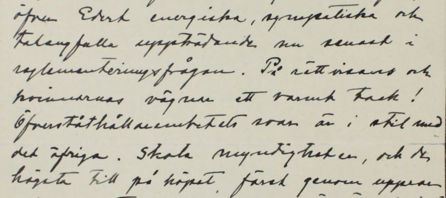 öfver Edert energiska, sympatiska och
talangfulla uppträdande nu senast i
reglementeringsfrågan. På rättvisans och
kvinnornas vägnar ett varmt tack!
Öfverståthållareembetets svar är i stil med
det öfriga. Skola myndigheter, och de
högsta till på köpet, först genom uppror